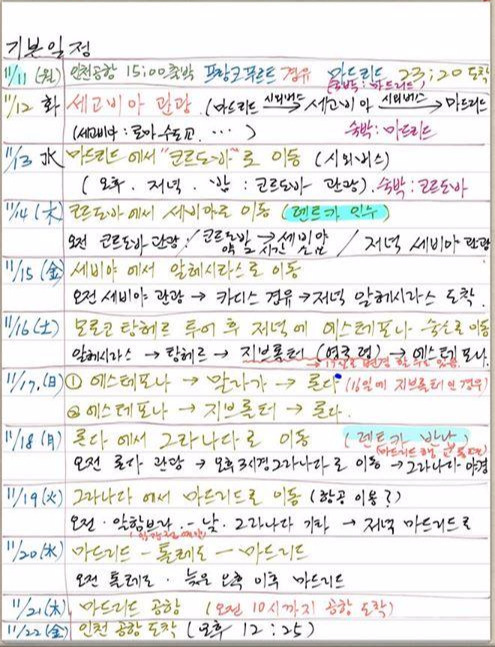 기본일정
11/11 (월) 인천공항 15:00 출발 프랑크푸르트 경유 마드리드 23:20 도착
숙박: 마드리드
11/12 화 세고비아 관광 (마드리드 시외버스→ 세고비아 시외버스→ 마드리드
(세고비아: 로마 수도교. ...) 숙박: 마드리드
11/13 水 마드리드에서 "코르도바"로 이동 (시외버스)
(오후. 저녁. 밤: 코르도바 관광). 숙박: 코르도바
11/14 (木) 코르도바에서 세비야로 이동 (렌트카 인수)
오전 코르도바 관광: / 코르도바 → 세비야 / 저녁 세비야 관광
11/15 (金) 세비야에서 알헤시라스로 이동
오전 세비야 관광 → 카디스 경유 → 저녁 알헤시라스 도착.
11/16 (土) 모로코 탕헤르 투어 후 저녁에 에스테포나 숙소로 이동
알헤시라스 → 탕헤르 → 지브롤터 (영국령) → 에스테포나.
→ 17일로 변경 할 수도 있음.
11/17. (日) ① 에스테포나 → 말라가 → 론다 (16일에 지브롤터인 경우)
② 에스테포나 → 지브롤터 → 론다.
11/18 (月) 론다에서 그라나다로 이동 (렌트카 반납)
오전 론다 관광 → 오후 3시경 그라나다로 이동 → 그라나다 야경
11/19 (火) 그라나다에서 마드리드로 이동 (항공 이용?)
오전. 알함브라. - 낮. 그라나다 기타 → 저녁 마드리드로
11/20 (水) 마드리드 - 톨레도 - 마드리드
오전 톨레도. 늦은 오후 이후 마드리드
11/21 (木) 마드리드 공항 (오전 10시까지 공항 도착)
11/22 (金) 인천 공항 도착 (오후 12:25)